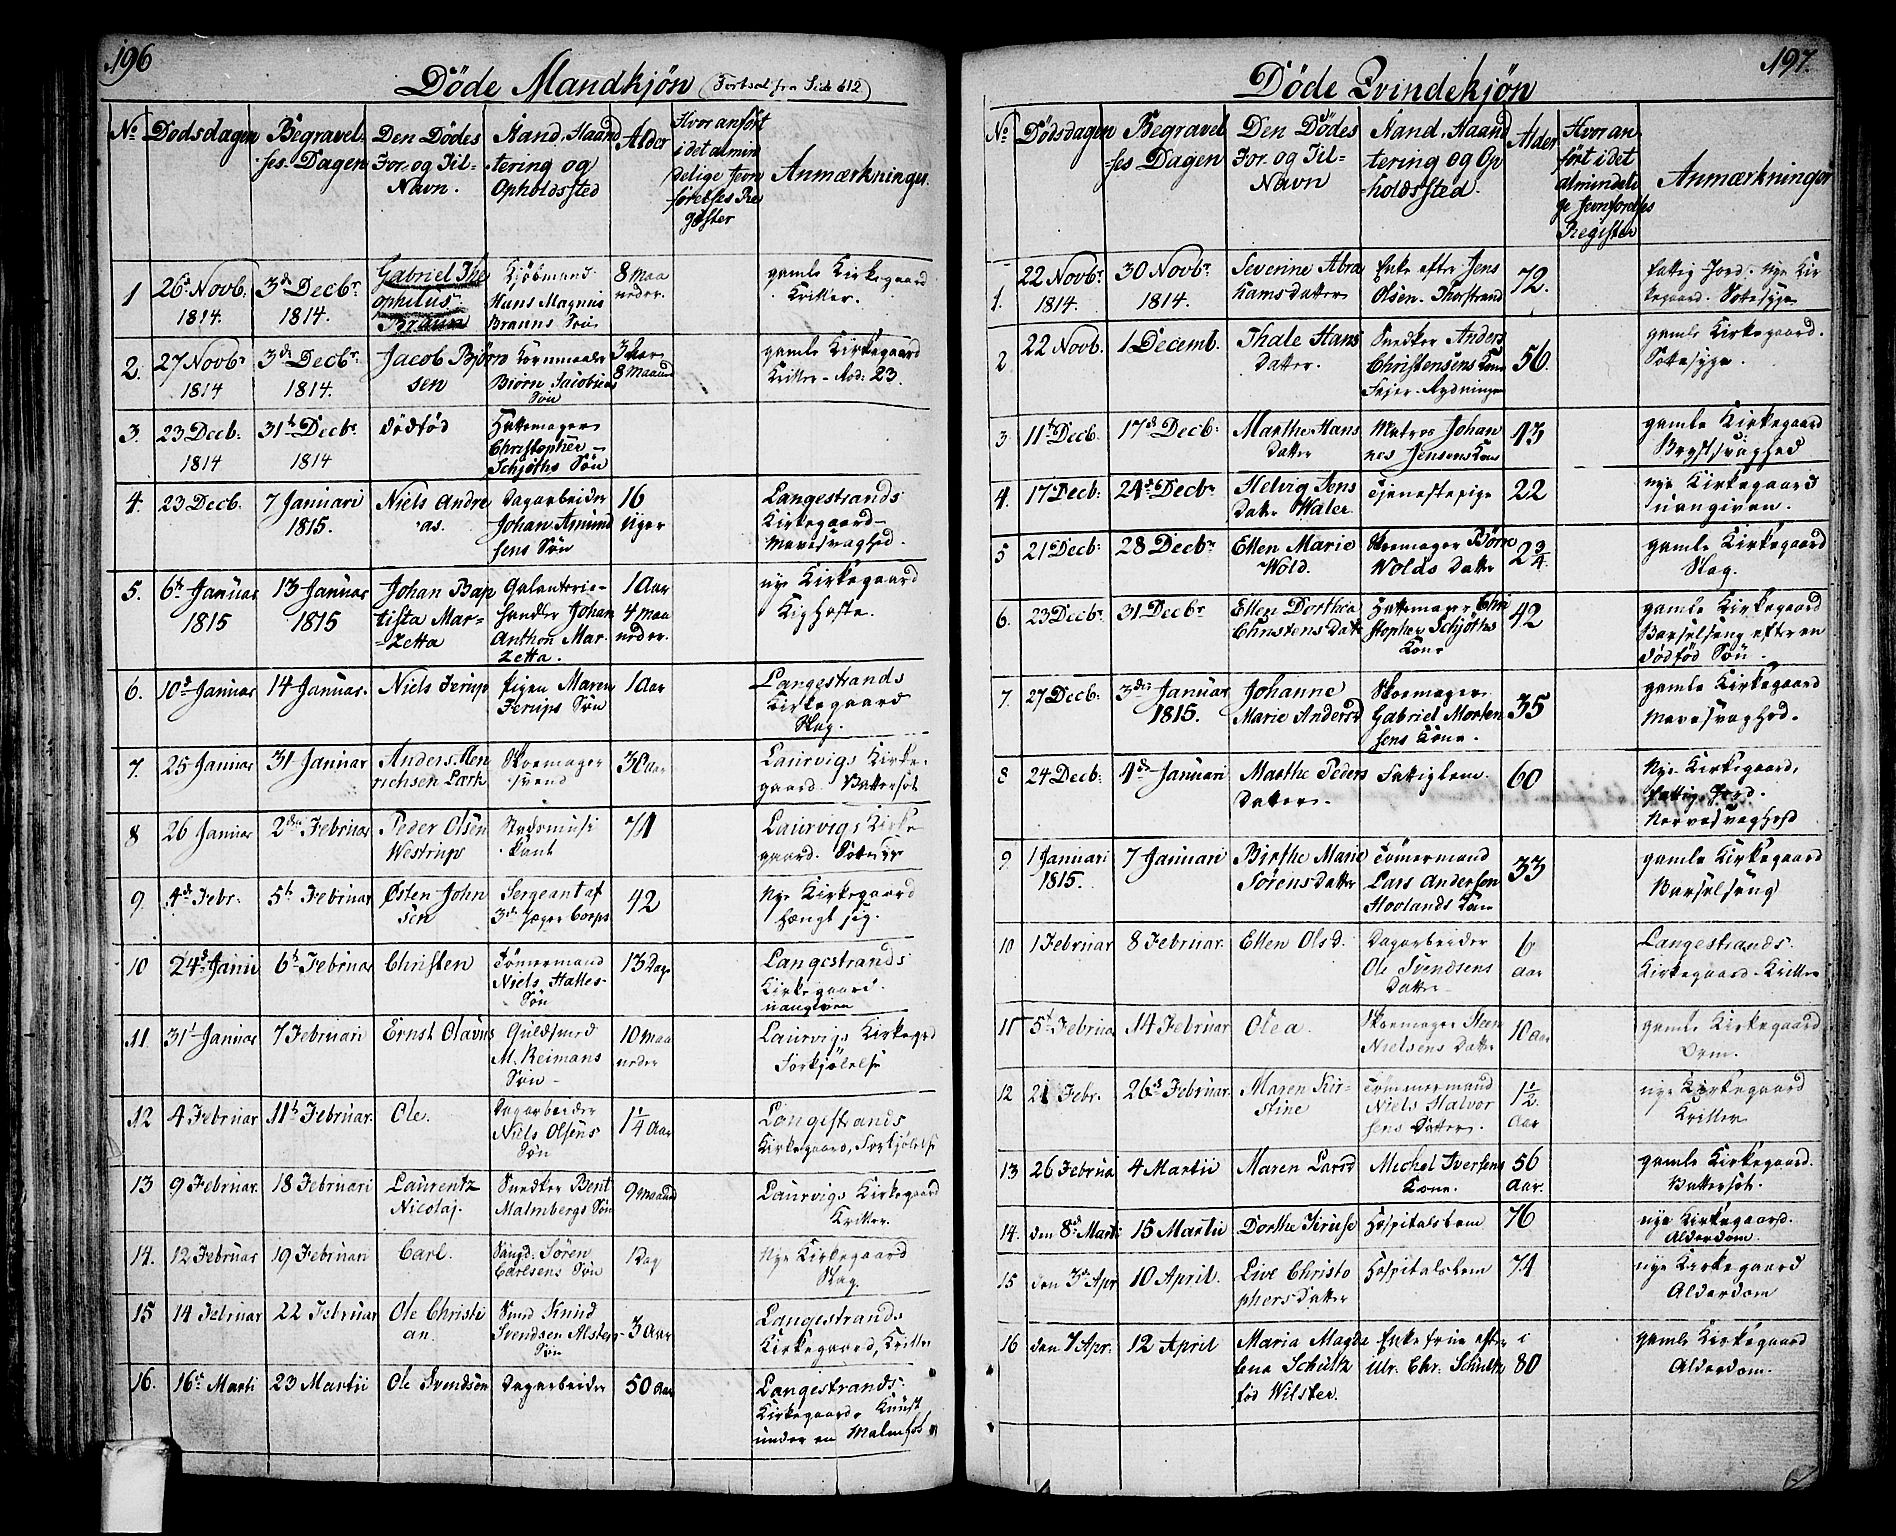 196
Döde Mandkjön (Fortsat fra Side 612)
No Dodsdagen Begravel-ses-Dagen Den Dödes For- og Til-Navn. Stand, Haandtering og Opholdssted Alder Hvor anfört i det almindelige Jevnförelses Register Anmærkninger.
1 26de Novb. 1814. 3de Decbr. 1814. Gabriel Theophilus Braun Kjöbmand Hans Magnus Brauns Sön 8 Maaneder. gamle Kirkegaard Kritler.
2. 27 Novbr 1814 3die Decbr. 1814. Jacob Björnsen Kornmaaler Biörn Jacobsens Sön 3 Aar 8 Maaned gamle Kirkegaard Kritler - Rod: 23.
3. 23 Decb: 1814 31te Decbr. 1814 dödfød Hattemager Christopher Schjøths Sön
4. 23 Decb. 7 Januari 1815. Niels Andreas. Dagarbeider Johan Amundsens Sön 16 Uger Langestrands Kirkegaard - Mavesvaghed.
5. 6te Januar 1815 13 Januar 1815 Johan Baptista Mar-zetta Galanterie-handler Johan Anthon Marzetta. 1 Aar 4 Maaneder. nye Kirkegaard Kighoste.
6. 10de Januar 14 Januar. Niels Ferup Pigen Maren Ferups Sön 1 Aar Langestrands Kirkegaard Slag.
7. 25 Januar 31 Januar Anders Henrichsen Lark Skoemagersvend 30 Aar Laurvigs Kirkegaard. Vattersot
8 26 Januar 2den Februar Peder Olsen Westrup Stadsmusikant 71 Laurvigs Kirkegaard. Sotesyge
9 4de Febr. 5te Februar Østen Johnsen Sergeant af 3die Jæger Corps 42 Nye Kirkegaard hængt sig.
10 24de Janu 6te Februar Christen Tömermand Niels Halles Sön 13 Dage Langestrands Kirkegaard. uangiven
11 31te Januar 7 Februari Ernst Olavus Guldsmed M. Reimans Sön 10 Maaneder Laurvigs Kirkegd Forkjölelse
12 4 Februar 11te Februar. Ole. Dagarbeider Niels Olsens Sön 1¼ Aar Langestrands Kirkegaard, Forkjölelse
13 9 Februar. 18 Februari Laurentz Nicolaj. Snedker Bent Malmbergs Sön 9 Maaned Laurvigs Kirkegaard Kritler.
14. 12 Februar 19 Februari Carl. Sören Carlsens Sön 1 Dag Nye Kirkegaard Slag.
15 14 Februar 22 Februar Ole Christian. Smed Knud Svendsen Alsters Sön 3 Aar Langestrands Kirkegaard, Kritler
16. 16de Marti 23 Martii Ole Svendsen Dagarbeider 50 Aar Langestrands Kirkegaard. Knust under en Malmfod
197.
Döde Qvindekjön
No Dödsdagen Begravel-ses Dagen Den Dödes For- og Til-Navn Stand, Haandtering og Opholdssted. Alder Hvor anfört i det almindelige Jevnforelses Register Anmærkninger
1. 22 Novbr 1814. 30 Novbr. 1814. Severine Abrahams datter Enke efter Jens Olsen Thorstrand 72. fattig Jord. Nye Kirkegaard. Sotesyge
2 22 Novb. 1 Decemb. Thale Hans Datter. Snedker Anders Christensens Kone Fejer-Rydningen 56. gamle Kirkegaard. Sotesyge.
3. 11te Decb. 17de Decb: Marthe Hans Datter Matros Johannes Jensens Kone 43 gamle Kirkegaard Brystsvaghed
4. 17 Decb: 24de Decbr Helvig Jens Datter Waler Tjenestepige 22 nye Kirkegaard uangiven.
5 21 Decb: 28 Decbr Ellen Marie Wold. Skoemager Börre Wolds Datter 2¾ gamle Kirkegaard Slag.
6. 23 Decbr 31 Decbr Ellen Dorthea Christens Datter Hattemager Christopher Schjöths Kone 42 gamle Kirkegaard Barselseng efter en dödföd Sön.
7. 27 Decb: 3die Januar 1815. Johanne Marie Andersd Skoemager Gabriel Mortensens Kone. 35 gamle Kirkegaard Mavesvaghed.
8 24 Decb: 4de Januari Marthe Peders Datter. Fattiglem. 60 Nye Kirkegaard, fattig Jord. Nervesvaghed
9 1 Januari 1815. 7 Januari Birthe Marie Sörens Datter Tömermand Lars Andersen Hovlands Kone 33 gamle Kirkegaard Barselseng
10 1 Februar 8 Februar. Ellen Olsd. Dagarbeider Ole Svendsens Datter 6 aar Langestrands Kirkegaard - Kritler
11 5te Februar 14 Februar. Olea. Skoemager Steen Nielsens Datter 10 aar gamle Kirkegaard Orm.
12 21 Febr. 26de Februar. Maren Kirstine Tömmermand Niels Halvorsens Datter. 1½ aar nye Kirkegaard Kritler
13 26 Februar 4 Martii Maren Larsd Michel Iversens Kone. 56 Aar. gamle Kirkegaard. Vattersot.
14. den 8de Marti 15 Martii Dorthe Kruse Hospitalslem 76 nye Kirkegaard. Alderdom.
15 den 3de Apr 10 April. Live Christophersdatter Hospitalslem 74 nye Kirkegaard Alderdom
16 den 7 Apr. 12 April Maria Magdalena Schultz föd Wilster. Enkefrue efter Chr: Schultz i 80 gamle Kirkegaard Alderdom.